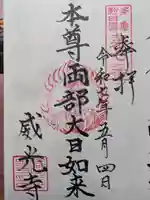 奉拝
令和七年五月四日
本尊両部大日如来
威光寺